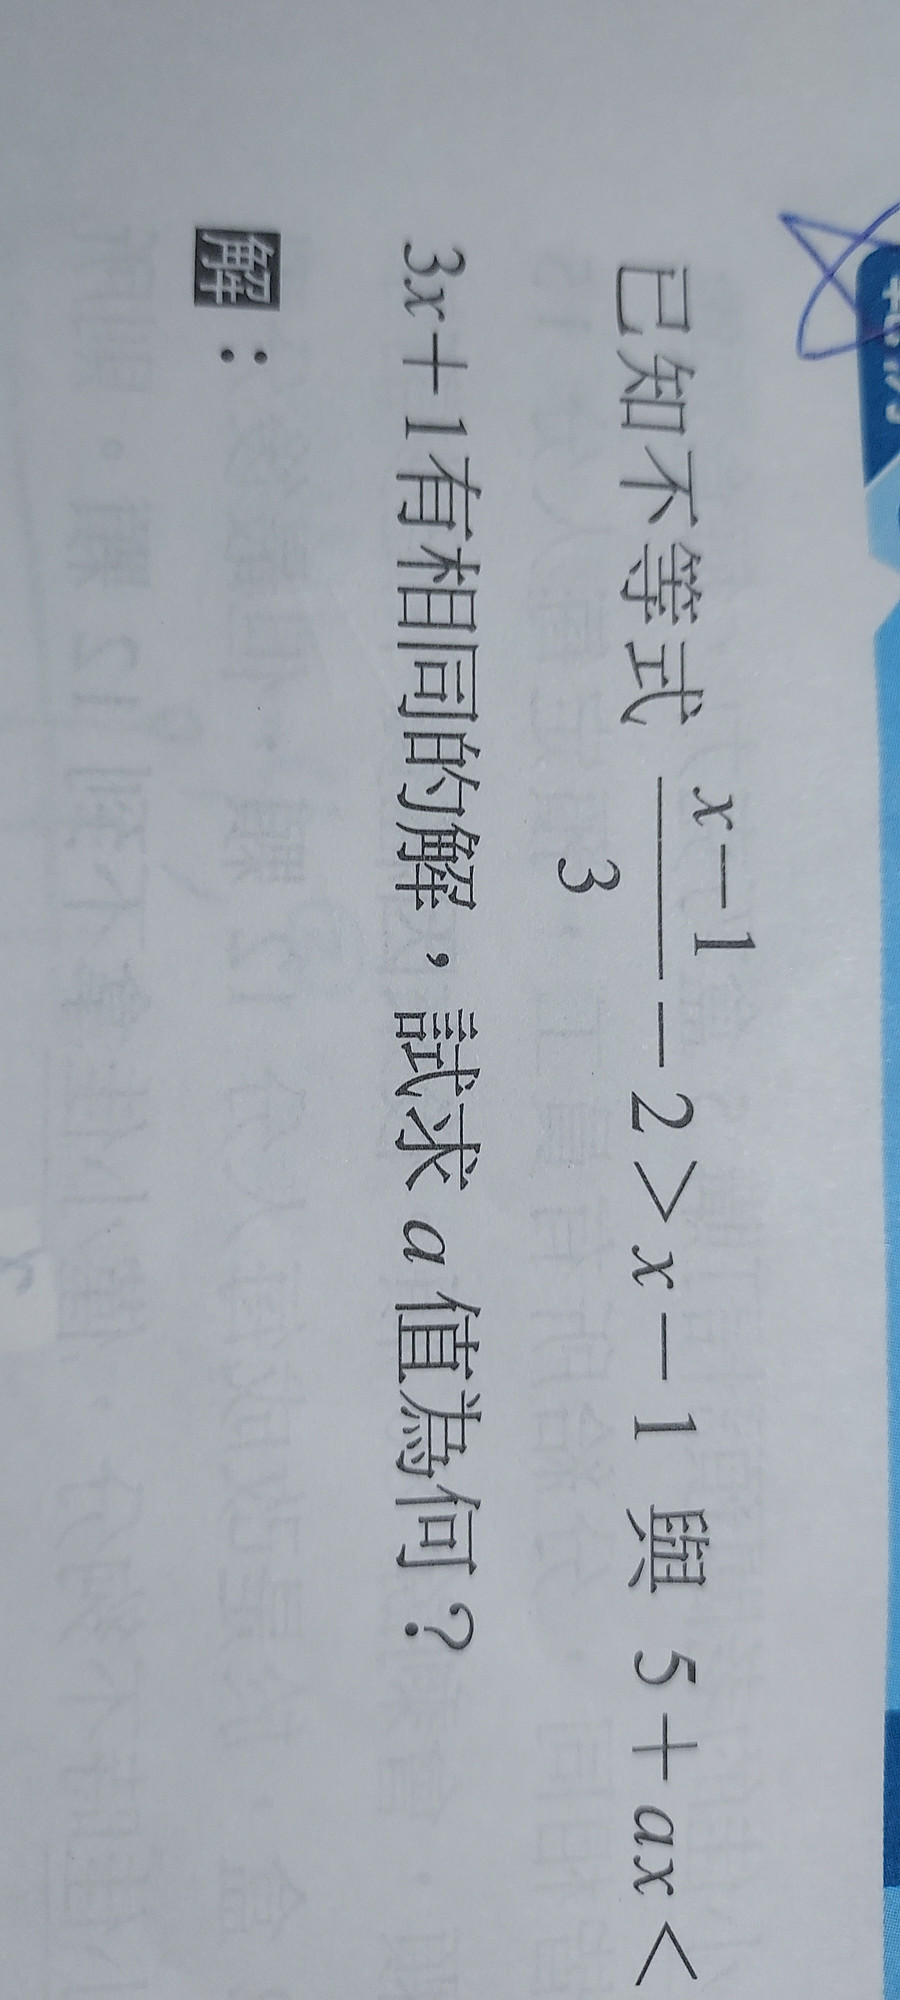 已知不等式 \frac{x-1}{3} - 2 > x - 1 與 5 + ax <
3x + 1 有相同的解，試求 a 值為何？
解：